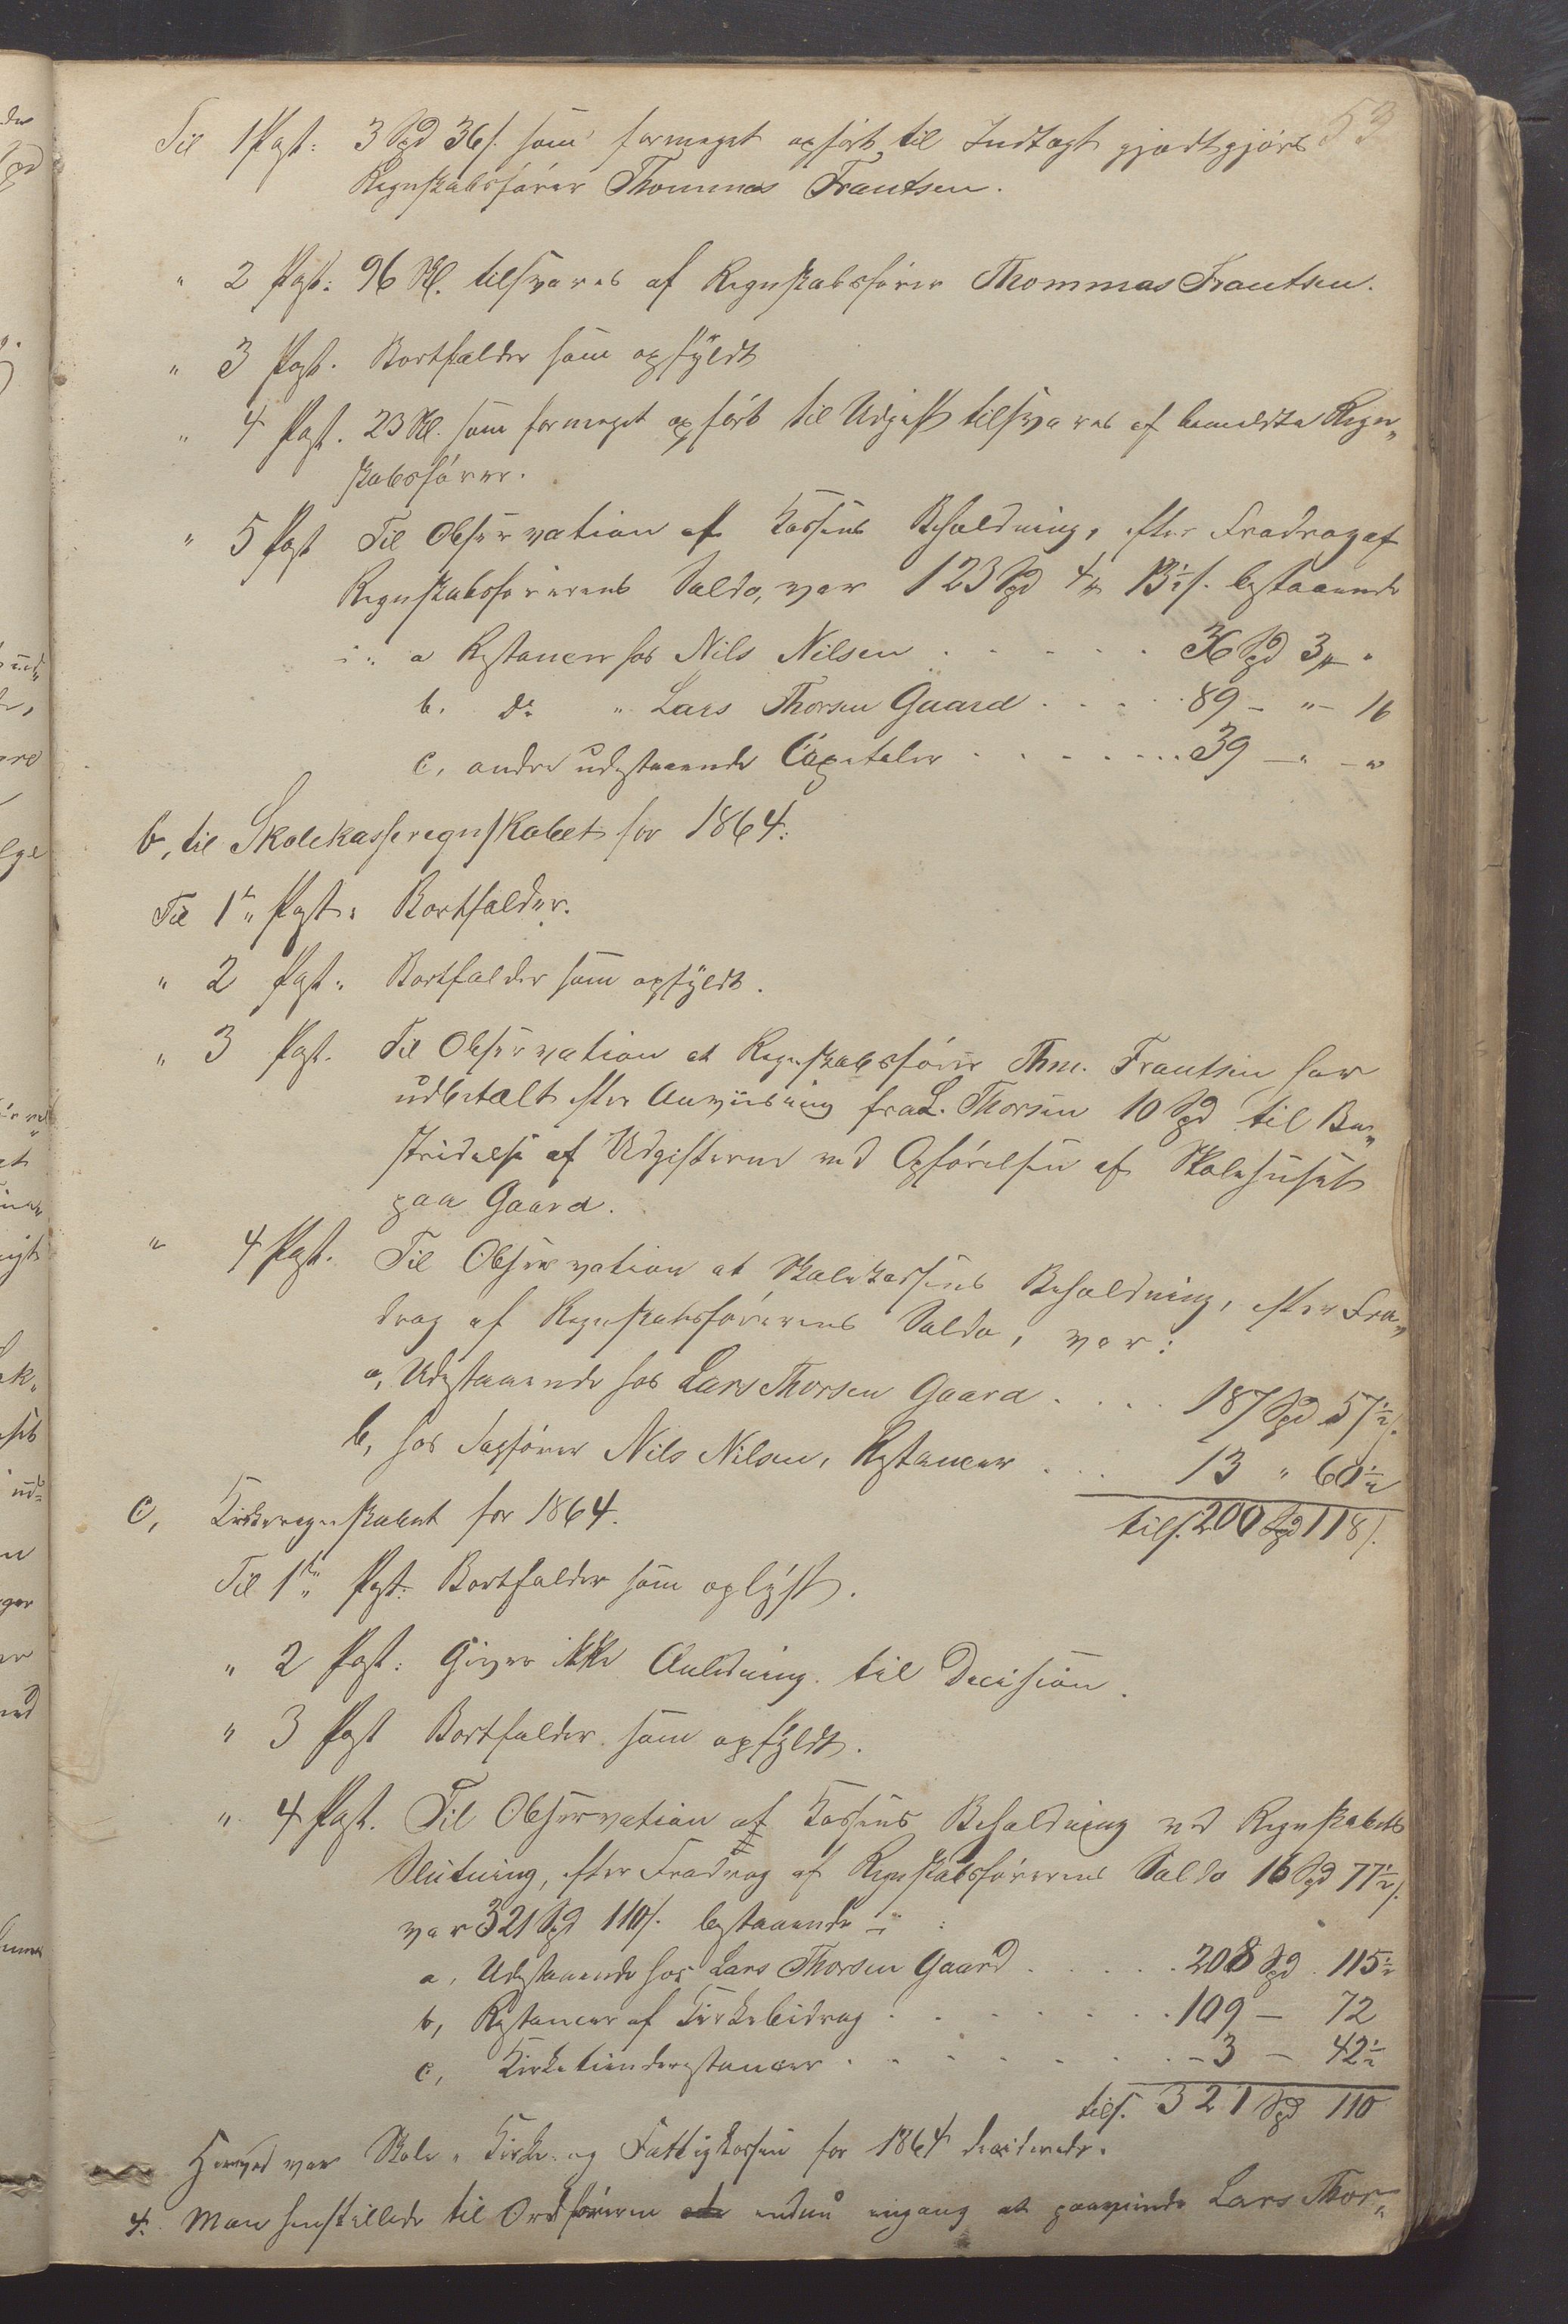 53
Til 1 Post: 3 Spd 36 s. som formeget opført til Indtægt gjodtgjøres
Regnskabsfører Thommas Frantsen.
" 2 Post: 96 Skl. tilsvares af Regnskabsfører Thommas Frantsen.
" 3 Post. Bortfalder som opfyldt
" 4 Post. 23 Skl. som formeget opført til Udgift tilsvares af bemeldte Regn„
skabsfører.
" 5 Post Til Observation at Kassens Beholdning, efter Fradrag af
Regnskabsførerens Saldo, var 123 Spd 4 13½ s. bestaaende
i: a Restancer hos Nils Nilsen . . . . . 36 Spd 3 "
b. do " Lars Thorsen Gaard . . . . 89 – " – 16
c, andre udestaaende Capitaler . . . . . . . 39 – " – "
b, til Skolekasseregnskabet for 1864:
Til 1ste Post: Bortfalder.
" 2 Post: Bortfalder som opfyldt.
" 3 Post. Til Observation at Regnskabsfører Thm. Frantsen har
udbetalt efter Anviisning fra L. Thorsen 10 Spd til Be„
stridelse af Udgifterne ved Opførelsen af Skolehuset
paa Gaard.
" 4 Post. Til Observation at Skolekassens Beholdning, efter Fra„
drag af Regnskabsførerens Saldo, var:
a, Udestaaende hos Lars Thorsen Gaard . . . . 187 Spd 57½ s.
b, hos Nils Nilsen, Restancer . . . 13 " 60½
tils. 200 Spd 118 s.
C, Kirkeregnskabet for 1864.
Til 1ste Post: Bortfalder som oplyst.
" 2 Post: Giver ikke Anledning til Decision.
" 3 Post Bortfalder som opfyldt.
" 4 Post. Til Observation at Kassens Beholdning ved Regnskabets
Slutning, efter Fradrag af Regnskabsførerens Saldo 16 Spd 77½ s.
var 321 Spd 110 s. bestaaende i:
a, Udestaaende hos Lars Thorsen Gaard . . . . . 208 Spd 115½
b, Restancer af Kirkebidrag . . . . . . . 109 – 72
c, Kirketienderestancer . . . . . . . . – 3 – 42½
tils. 321 Spd 110
Herved var Skole-, Kirke- og Fattigkassen for 1864 deciderede.
4. Man henstillede til Ordføreren endnu engang at paaminde Lars Thor„